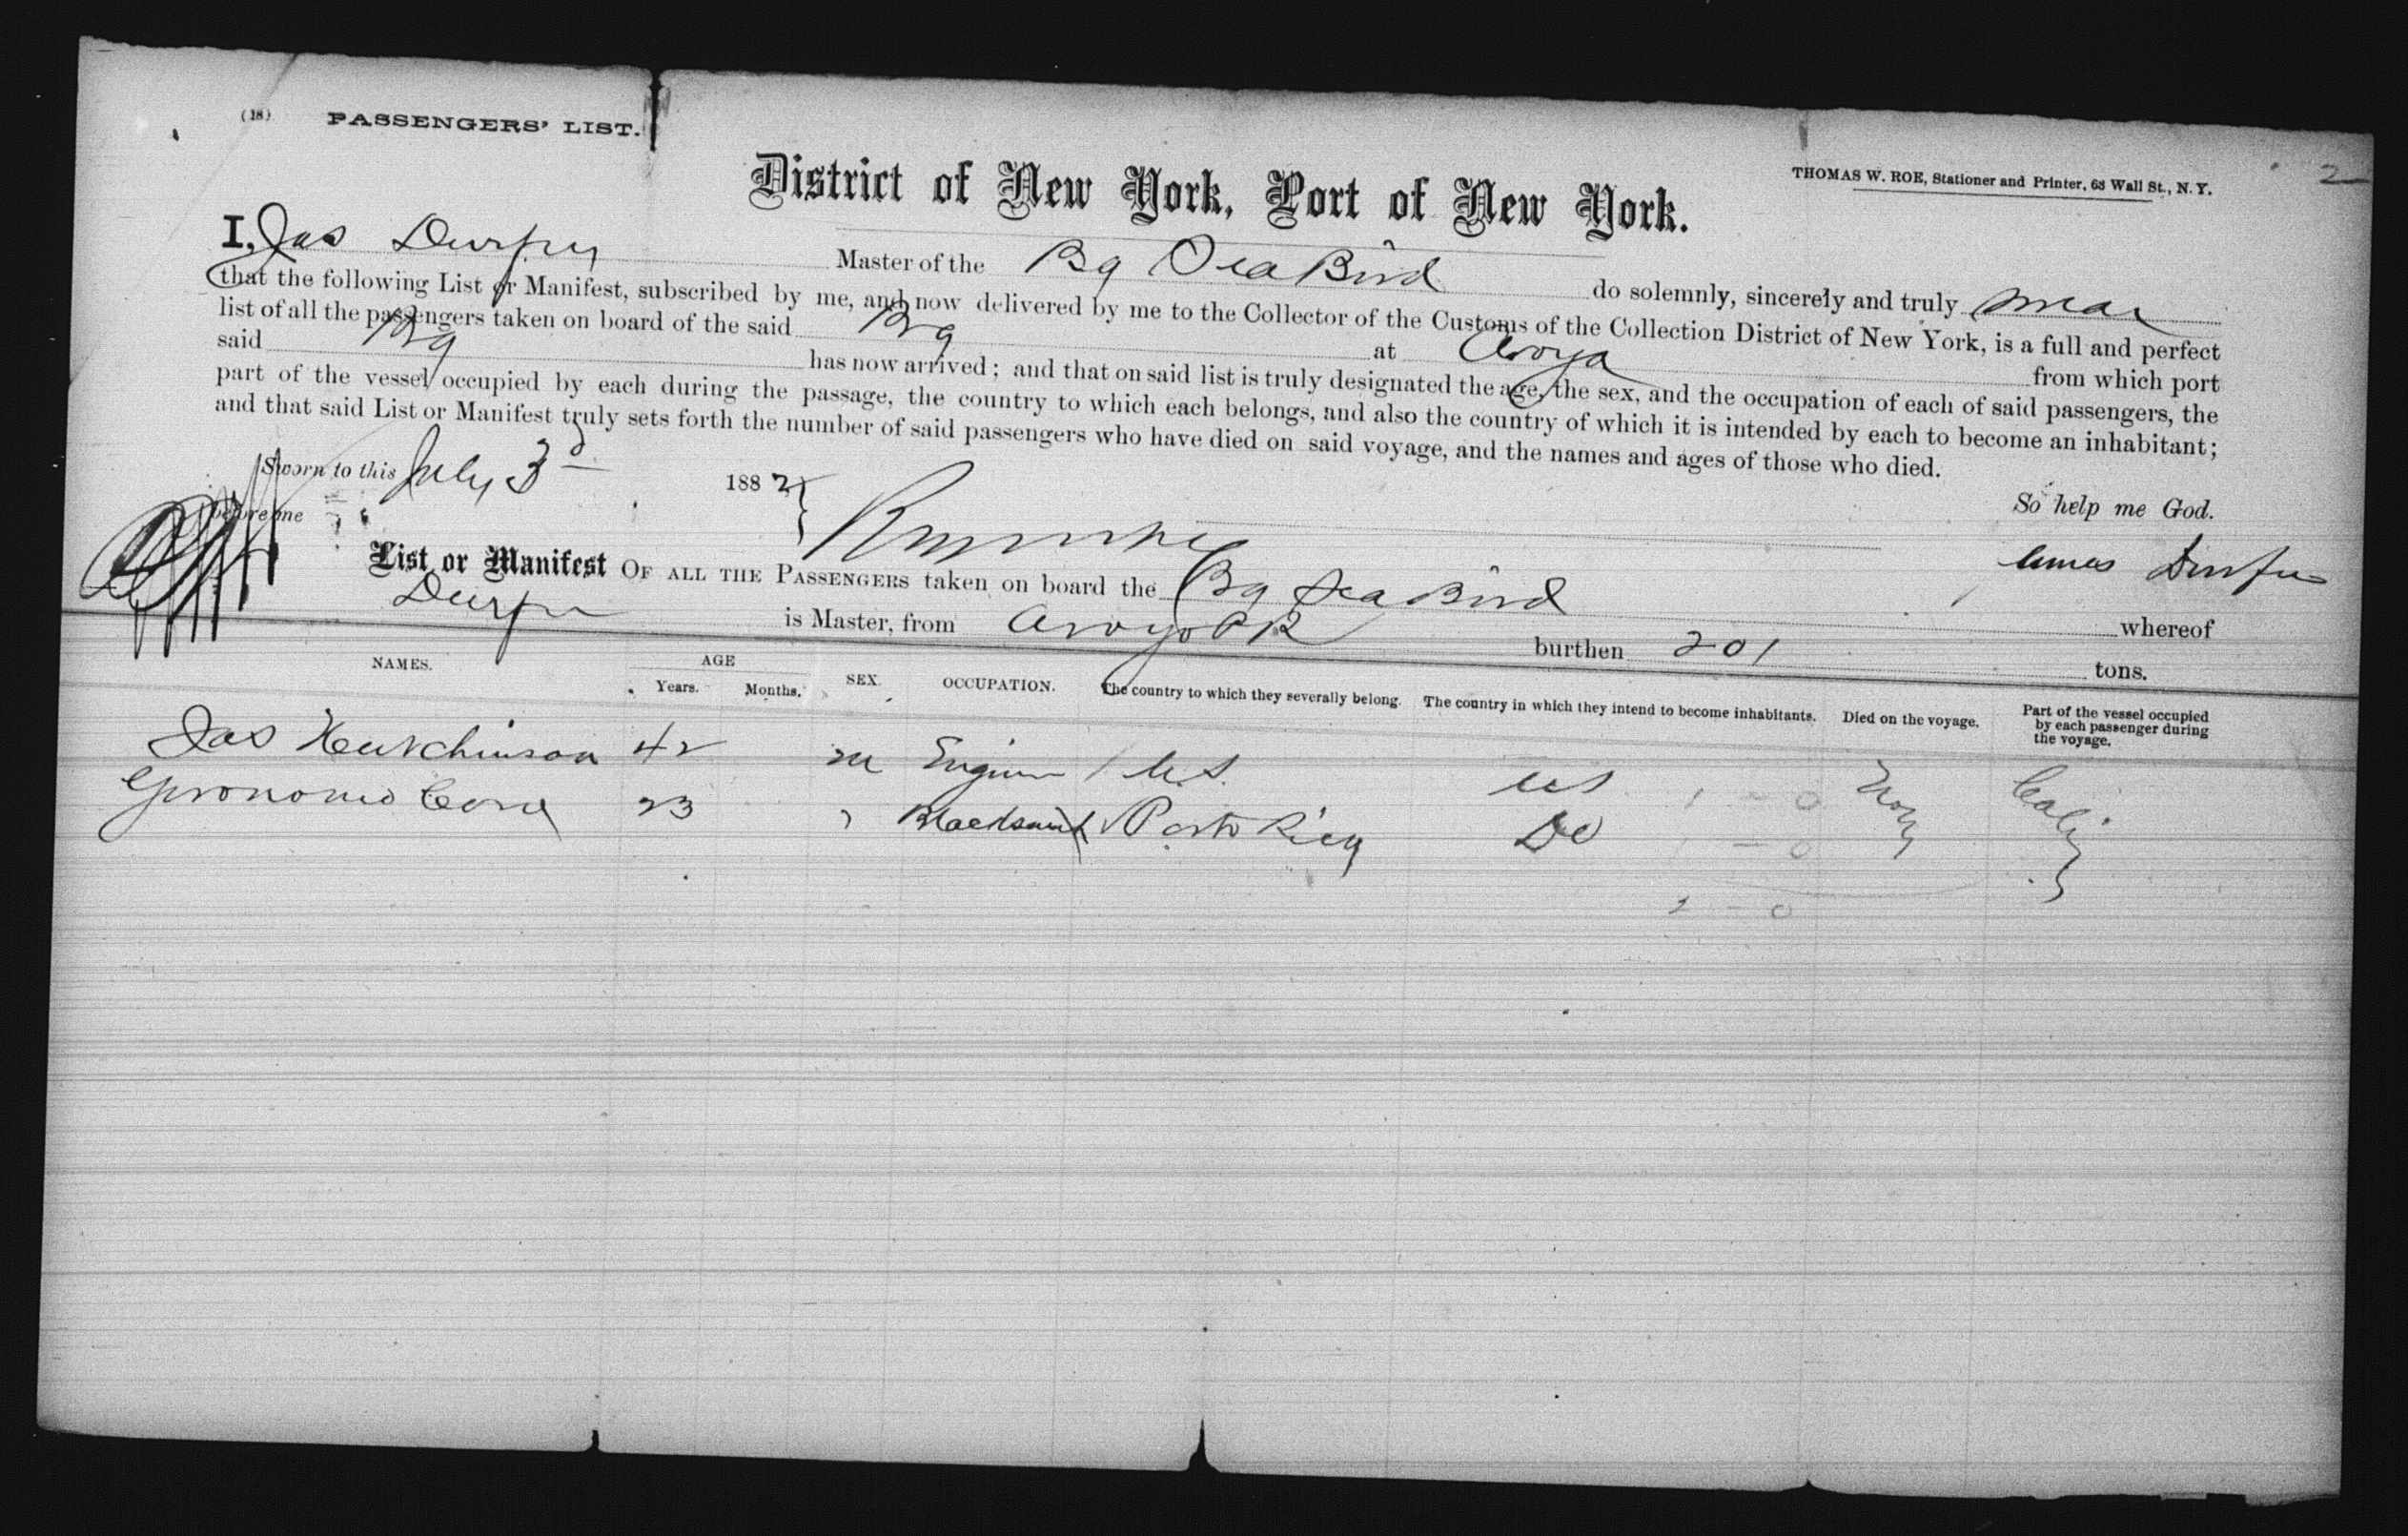 (18) PASSENGERS' LIST.
THOMAS W. ROE, Stationer and Printer, 63 Wall St., N. Y.
2
District of New York, Port of New York.
I, Jas Durfey Master of the Bg Sea Bird do solemnly, sincerely and truly swear
that the following List or Manifest, subscribed by me, and now delivered by me to the Collector of the Customs of the Collection District of New York, is a full and perfect
list of all the passengers taken on board of the said Brg at Aroyo from which port
said Brg has now arrived; and that on said list is truly designated the age, the sex, and the occupation of each of said passengers, the
part of the vessel occupied by each during the passage, the country to which each belongs, and also the country of which it is intended by each to become an inhabitant;
and that said List or Manifest truly sets forth the number of said passengers who have died on said voyage, and the names and ages of those who died.
So help me God.
Sworn to this July 3d 1882
before me
James Durfee
List or Manifest OF ALL THE PASSENGERS taken on board the Bg Sea Bird whereof
is Master, from Aroyo PR burthen 201 tons.
NAMES. AGE SEX. OCCUPATION. The country to which they severally belong. The country in which they intend to become inhabitants. Died on the voyage. Part of the vessel occupied
by each passenger during
the voyage.
Years. Months.
Jas Hutchinson 42 m Engineer U.S. US 1 - 0
23 Blacksmith Porto Rico Do 1 - 0
2 - 0